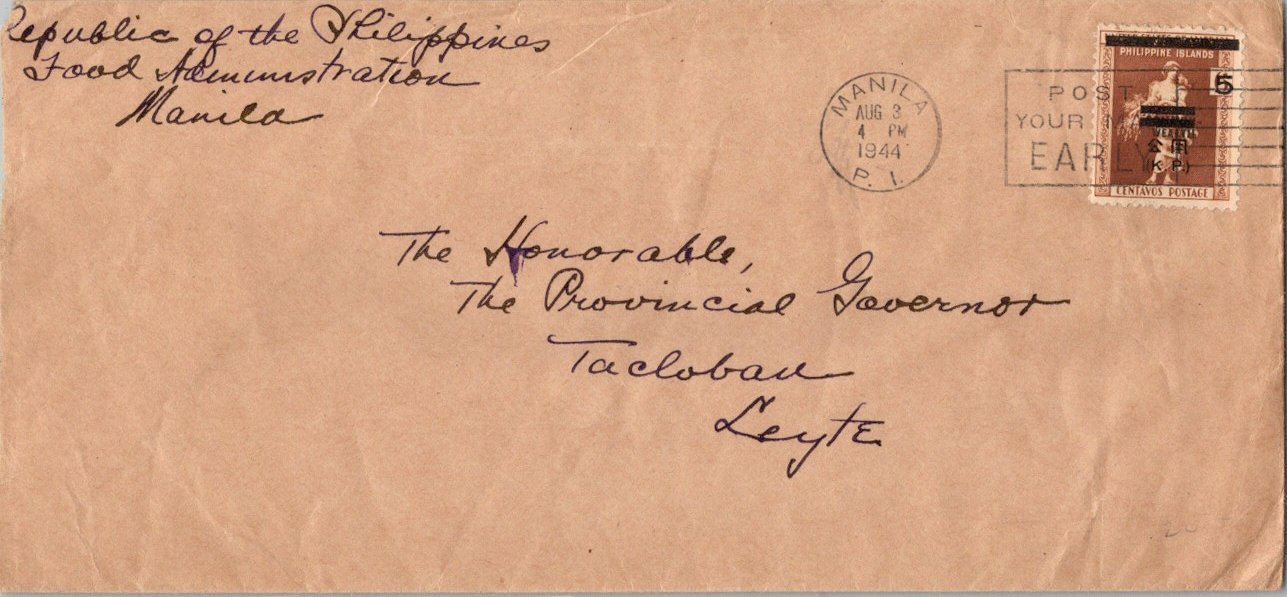 Republic of the Philippines
Food Administration
Manila
MANILA
AUG 3
4 PM
1944
P. I.
POST
YOUR
EARLY
PHILIPPINE ISLANDS
5
公用
(K. P.)
CENTAVOS POSTAGE
The Honorable,
The Provincial Governor
Tacloban
Leyte